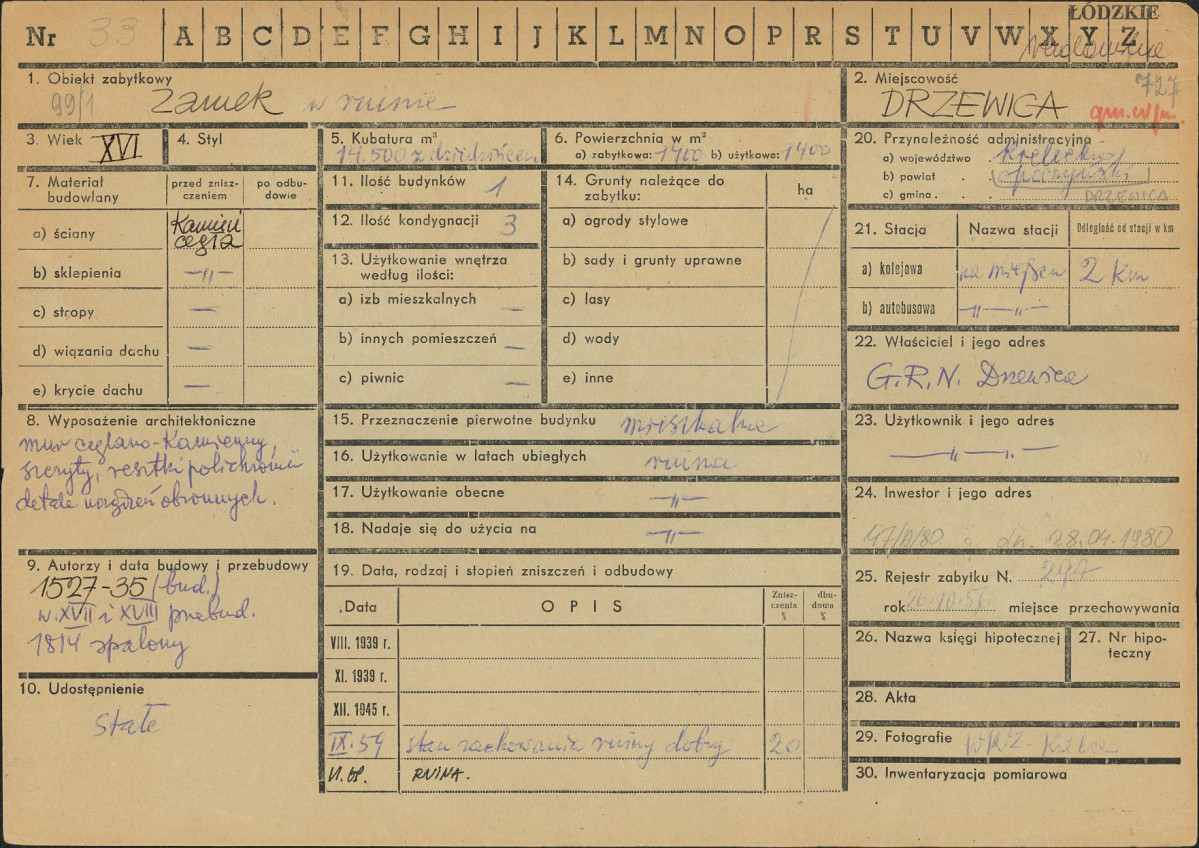 ŁÓDZKIE
Nr 33 A B C D E F G H I J K L M N O P R S T U V W X Y Z
1. Obiekt zabytkowy
99/1 Zamek w ruinie
2. Miejscowość
727
DRZEWICA
gm. w/m.
3. Wiek XVI
4. Styl
5. Kubatura m³
14.500 z dziedzińcem
6. Powierzchnia w m²
a) zabytkowa: 1400 b) użytkowa: 1400
7. Materiał budowlany
przed zniszczeniem
po odbudowie
a) ściany Kamień cegła
b) sklepienia —„—
c) stropy —
d) wiązania dachu —
e) krycie dachu —
8. Wyposażenie architektoniczne
mur ceglano-Kamienny,
szczyty, resztki polichromii
detale urządzeń obronnych.
9. Autorzy i data budowy i przebudowy
1527-35 (bud.)
w. XVII i XVIII przebud.
1814 spalony
10. Udostępnienie
Stałe
11. Ilość budynków 1
12. Ilość kondygnacji 3
13. Użytkowanie wnętrza
według ilości:
a) izb mieszkalnych —
b) innych pomieszczeń —
c) piwnic —
14. Grunty należące do
zabytku:
ha
a) ogrody stylowe
b) sady i grunty uprawne
c) lasy
d) wody
e) inne
15. Przeznaczenie pierwotne budynku mieszkalne
16. Użytkowanie w latach ubiegłych ruina
17. Użytkowanie obecne —„—
18. Nadaje się do użycia na —„—
19. Data, rodzaj i stopień zniszczeń i odbudowy
.Data
OPIS
Zniszczenia %
dbudowa %
VIII. 1939 r.
XI. 1939 r.
XII. 1945 r.
IX.59 stan zachowania ruiny dobry 20
RUINA.
20. Przynależność administracyjna
a) województwo Kieleckie
b) powiat . opoczyński
c) gmina . . . DRZEWICA
21. Stacja
Nazwa stacji
Odległość od stacji w km
a) kolejowa na miejscu 2 Km
b) autobusowa —„—„—
22. Właściciel i jego adres
G.R.N. Drzewica
23. Użytkownik i jego adres
—„—„—
24. Inwestor i jego adres
z dn. 28.04.1980
25. Rejestr zabytku N. 247
rok miejsce przechowywania
26. Nazwa księgi hipotecznej
27. Nr hipoteczny
28. Akta
29. Fotografie WKZ - Kielce
30. Inwentaryzacja pomiarowa